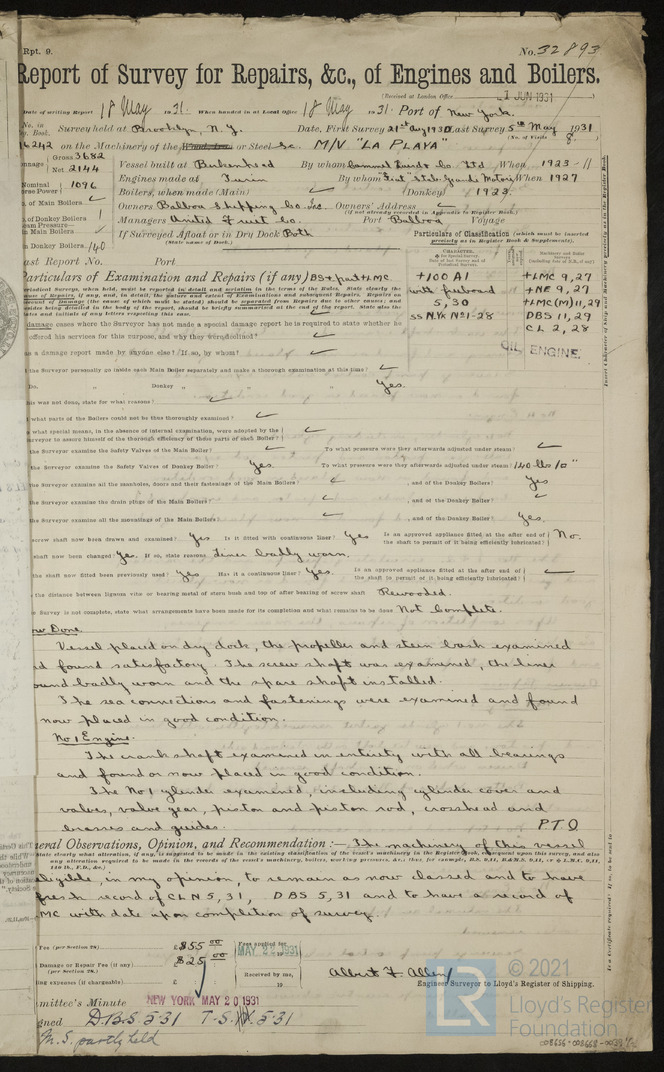 Rpt. 9.
No. 32893
Report of Survey for Repairs, &c., of Engines and Boilers.
(Received at London Office
1 JUN 1931
Date of writing Report 18 May 1931. When handed in at Local Office 18 May 1931. Port of New York.
No. in
Survey held at Brooklyn, N.Y. Date, First Survey 21st Aug 1930 Last Survey 5th May 1931
(No. of Visits 8.)
on the Machinery of the Wood, Iron or Steel Sc. M/V "LA PLAYA"
Gross 3682
Net 2144
Vessel built at Birkenhead By whom Cammell Laird & Co Ltd When 1923-11
Nominal 1096
Engines made at Turin By whom "Fiat" Stab. Grandi Motori When 1927
Boilers, when made (Main) (Donkey) 1923.
of Main Boilers
Owners Balboa Shipping Co. Inc. Owners' Address
(If not already recorded in Appendix to Register Book.)
of Donkey Boilers 1
Managers United Fruit Co. Port Balboa Voyage
Main Boilers
If Surveyed Afloat or in Dry Dock Both
(State name of Dock.)
Donkey Boilers 140
Particulars of Classification (which must be inserted
precisely as in Register Book & Supplements).
Last Report No. Port
Particulars of Examination and Repairs (if any) BS + part LMC
+100 A1
with freeboard
5,30
SS N.Yk No1-28
+LMC 9,27
+NE 9,27
+LMC(M) 11,29
DBS 11,29
CL 2,28
OIL ENGINE.
damage cases where the Surveyor has not made a special damage report he is required to state whether he
offered his services for this purpose, and why they were declined?
a damage report made by anyone else? If so, by whom?
the Surveyor personally go inside each Main Boiler separately and make a thorough examination at this time?
Do. " Donkey " " " Yes.
this was not done, state for what reasons?
what parts of the Boilers could not be thoroughly examined?
what special means, in the absence of internal examination, were adopted by the
Surveyor to assure himself of the thorough efficiency of those parts of such Boiler?
the Surveyor examine the Safety Valves of the Main Boiler? To what pressure were they afterwards adjusted under steam?
the Surveyor examine the Safety Valves of Donkey Boiler? Yes To what pressure were they afterwards adjusted under steam? 140 lbs /□"
the Surveyor examine all the manholes, doors and their fastenings of the Main Boilers? , and of the Donkey Boiler? Yes
the Surveyor examine the drain plugs of the Main Boilers? , and of the Donkey Boiler?
the Surveyor examine all the mountings of the Main Boilers? , and of the Donkey Boiler? Yes.
screw shaft now been drawn and examined? Yes Is it fitted with continuous liner? Yes Is an approved appliance fitted at the after end of the shaft to permit of it being efficiently lubricated? No.
shaft now been changed? Yes. If so, state reasons Liner badly worn.
the shaft now fitted been previously used? Yes Has it a continuous liner? Yes. Is an approved appliance fitted at the after end of the shaft to permit of it being efficiently lubricated?
the distance between lignum vitæ or bearing metal of stern bush and top of after bearing of screw shaft Rewooded.
Survey is not complete, state what arrangements have been made for its completion and what remains to be done Not Complete.
Now Done.
Vessel placed on dry dock, the propeller and stern bush examined
and found satisfactory. The screw shaft was examined, the liner
found badly worn and the spare shaft installed.
The sea connections and fastenings were examined and found
or now placed in good condition.
No 1 Engine.
The crank shaft examined in entirety with all bearings
and found or now placed in good condition.
The No 1 cylinder examined, including cylinder cover and
valves, valve gear, piston and piston rod, crosshead and
brasses and guides. P.T.O
General Observations, Opinion, and Recommendation:— The machinery of this vessel
eligible, in my opinion, to remain as now classed and to have
fresh record of CLN 5,31, DBS 5,31 and to have a record of
LMC with date upon completion of survey.
Fee (per Section 28) $55.00
Fee applied for
MAY 22 1931
Damage or Repair Fee (if any) $25.00
(per Section 28.)
Received by me,
19
Albert F. Allen
Engineer Surveyor to Lloyd's Register of Shipping.
Committee's Minute NEW YORK MAY 20 1931
D.B.S 5.31 T.S. 5.31
M.S. partly held
© 2021
LR
Lloyd's Register
Foundation